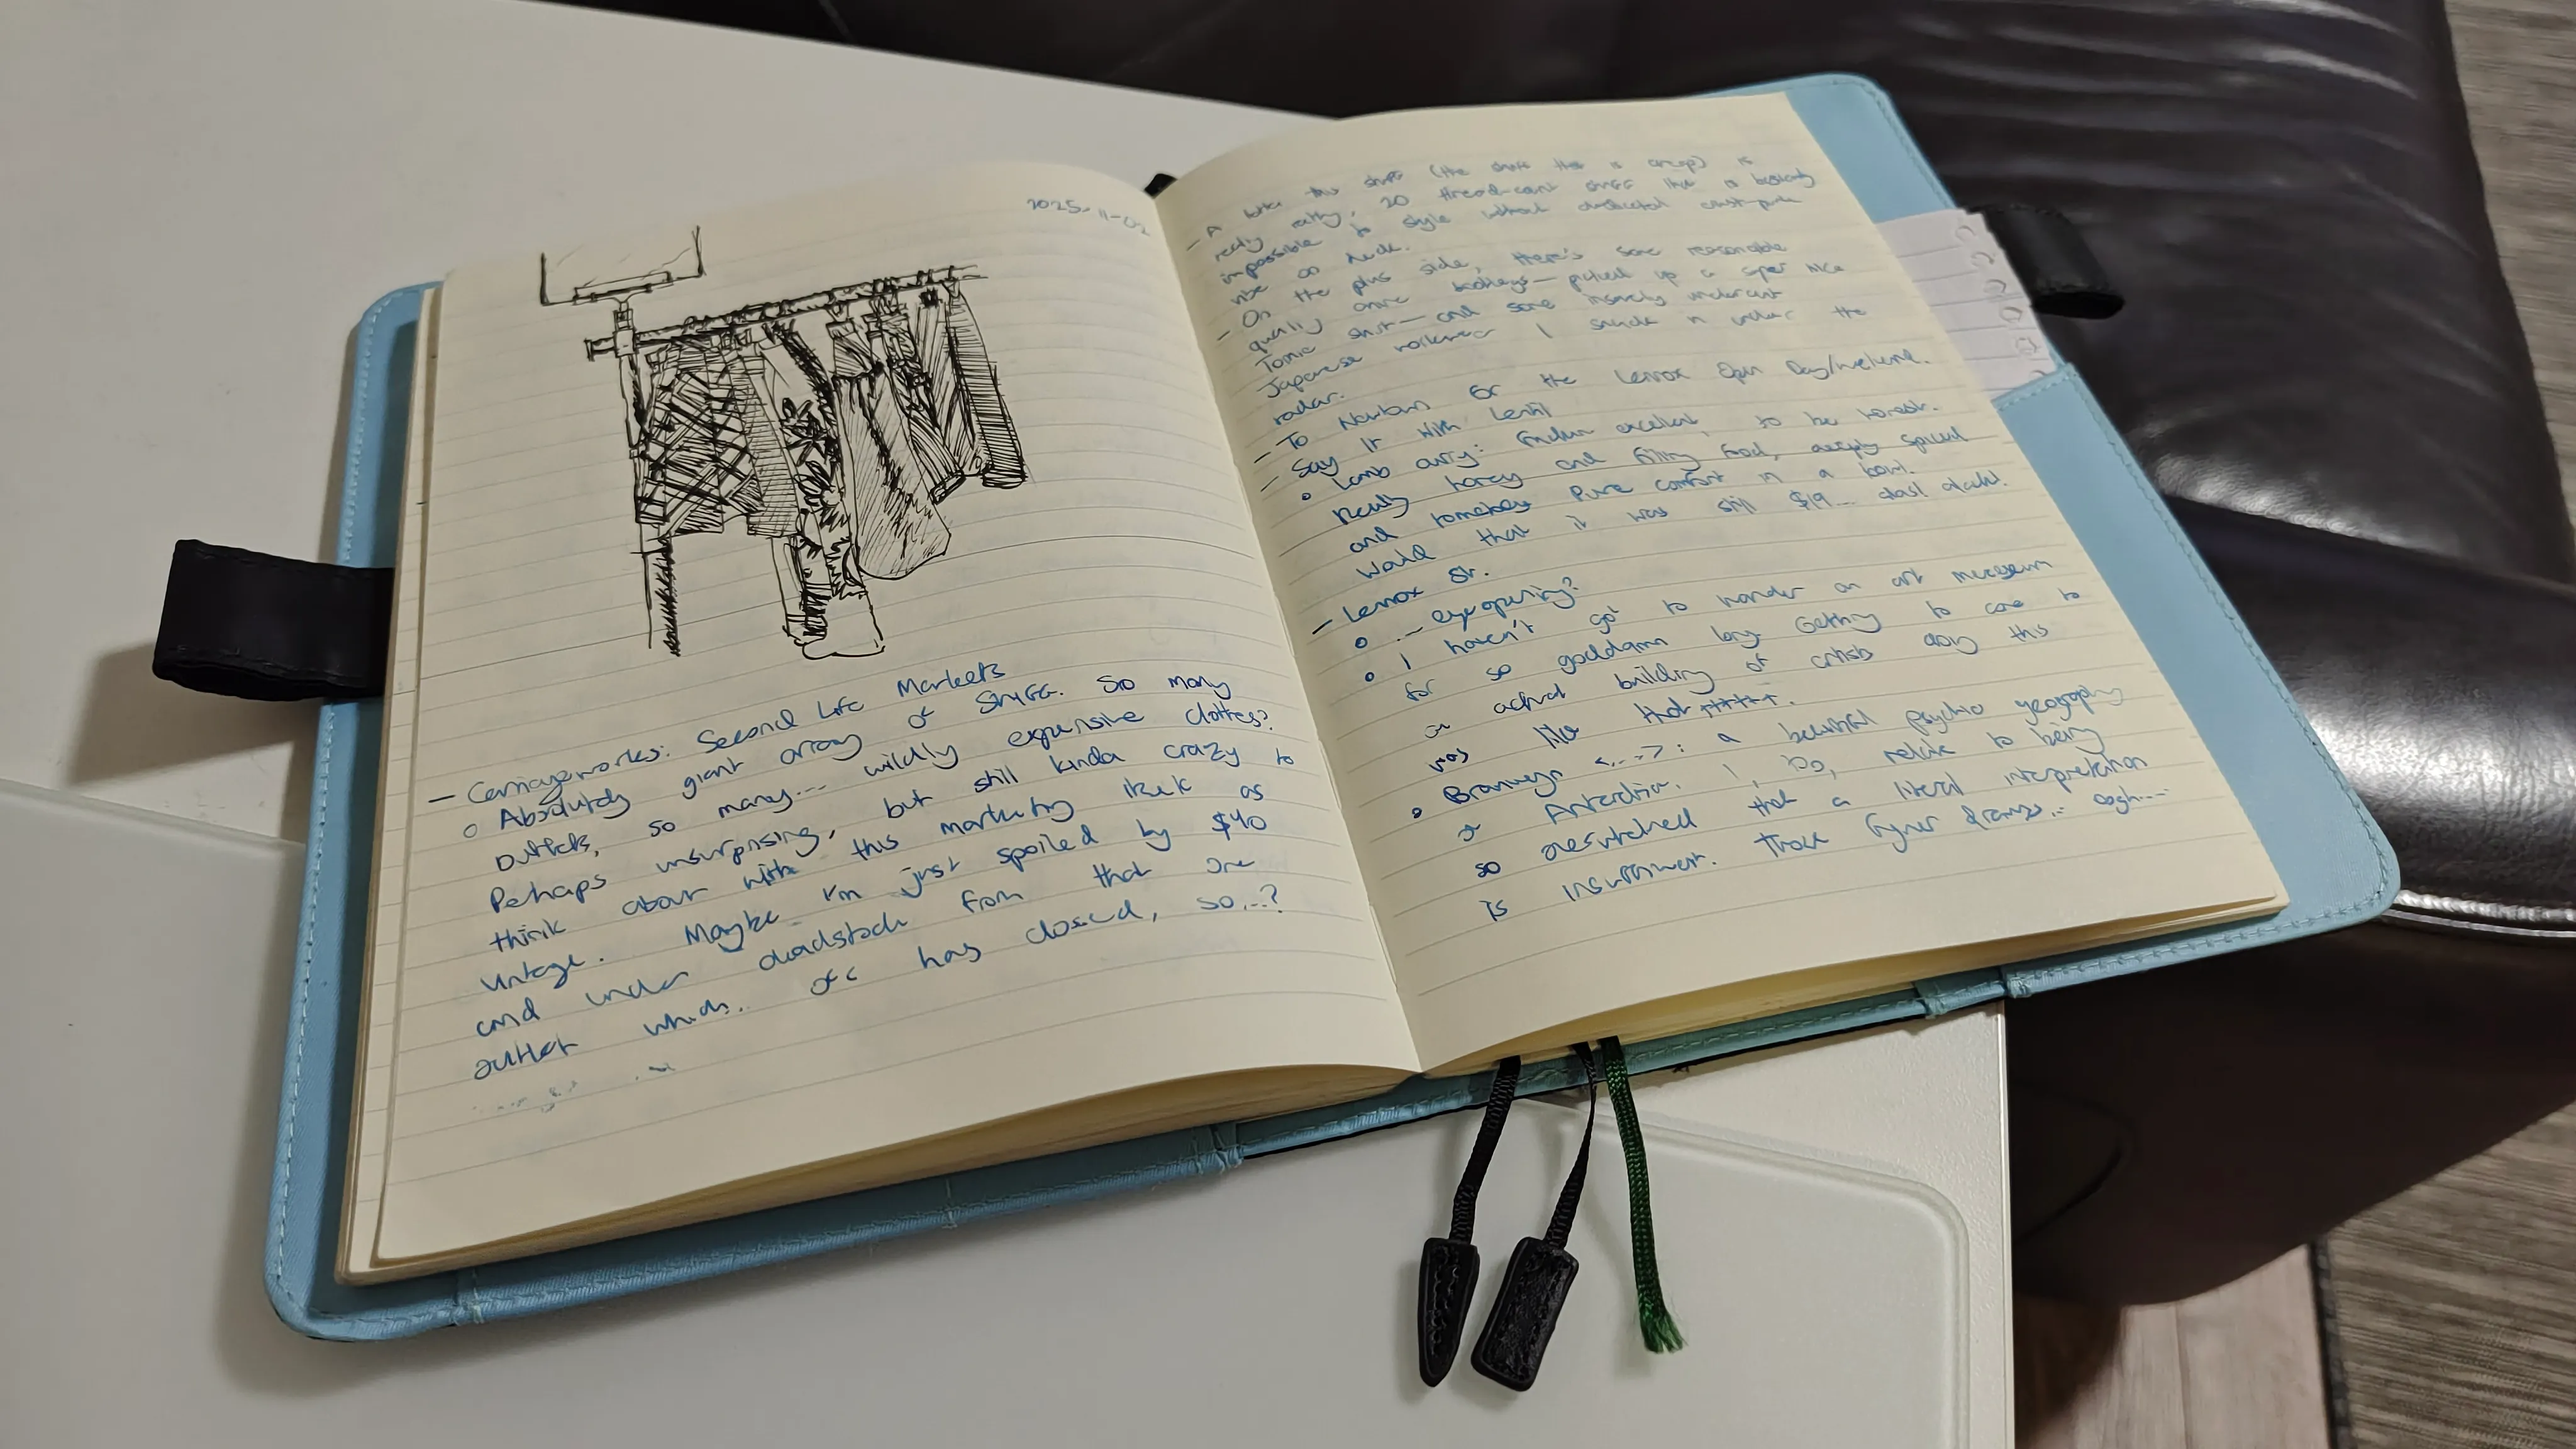 2025-11-02
– Carriageworks: Second Life Markets
○ Absolutely giant array of stuff. So many
outlets, so many... wildly expensive clothes?
Perhaps unsurprising, but still kinda crazy to
think about with this marketing itself as
vintage. Maybe I'm just spoiled by $40
and under deadstock from that one
outlet which ofc has closed, so...?
– A lotta this stuff (the stuff that is cheap) is
really ratty, 20 thread-count stuff that is basically
impossible to style without
vibe as dude.
– On the plus side, there's some reasonable
quality picked up a super nice
shirt — and some insanely undercut
Japanese I snuck in under the
radar.
– To for the Lennox Open Day/Weekend.
– Say It With Lentil
○ Lamb curry: excellent, to be honest.
Really and filling food, deeply spiced
and Pure comfort in a bowl.
Would that it was still $19... alas! alack!
– Lennox St.
○ ... eye opening?
○ I haven't got to wander an art museum
for so goddamn long. Getting to come to
an actual building of artists doing this
was like that +++++.
○ <...>: a beautiful psycho geography
of I, too, relate to being
so that a literal interpretation
is insufficient. Those ... ough...